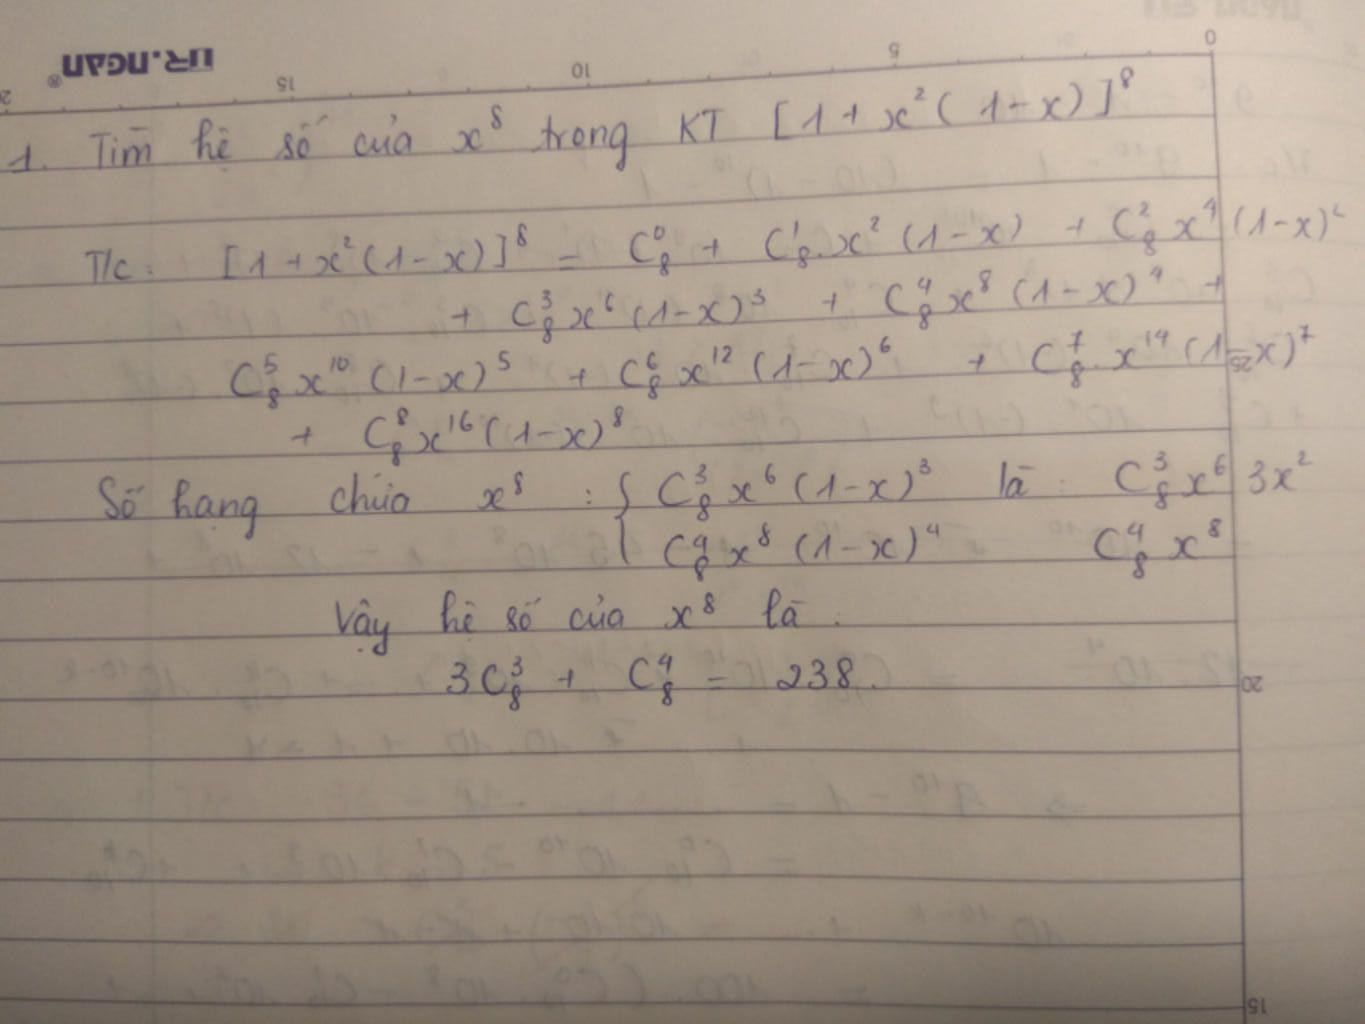 TR.NGAN®
0 5 10 15 20
1. Tìm hệ số của x⁸ trong KT [1 + x²(1-x)]⁸
T/c: [1+x²(1-x)]⁸ = C₈⁰ + C₈¹.x²(1-x) + C₈²x⁴(1-x)²
+ C₈³x⁶(1-x)³ + C₈⁴x⁸(1-x)⁴ +
C₈⁵x¹⁰(1-x)⁵ + C₈⁶x¹²(1-x)⁶ + C₈⁷.x¹⁴(1-x)⁷
25
+ C₈⁸x¹⁶(1-x)⁸
Số hạng chứa x⁸ : { C₈³x⁶(1-x)³ là: C₈³x⁶ 3x²
C₈⁴x⁸(1-x)⁴ C₈⁴x⁸
Vậy hệ số của x⁸ là.
3C₈³ + C₈⁴ = 238.
20
15